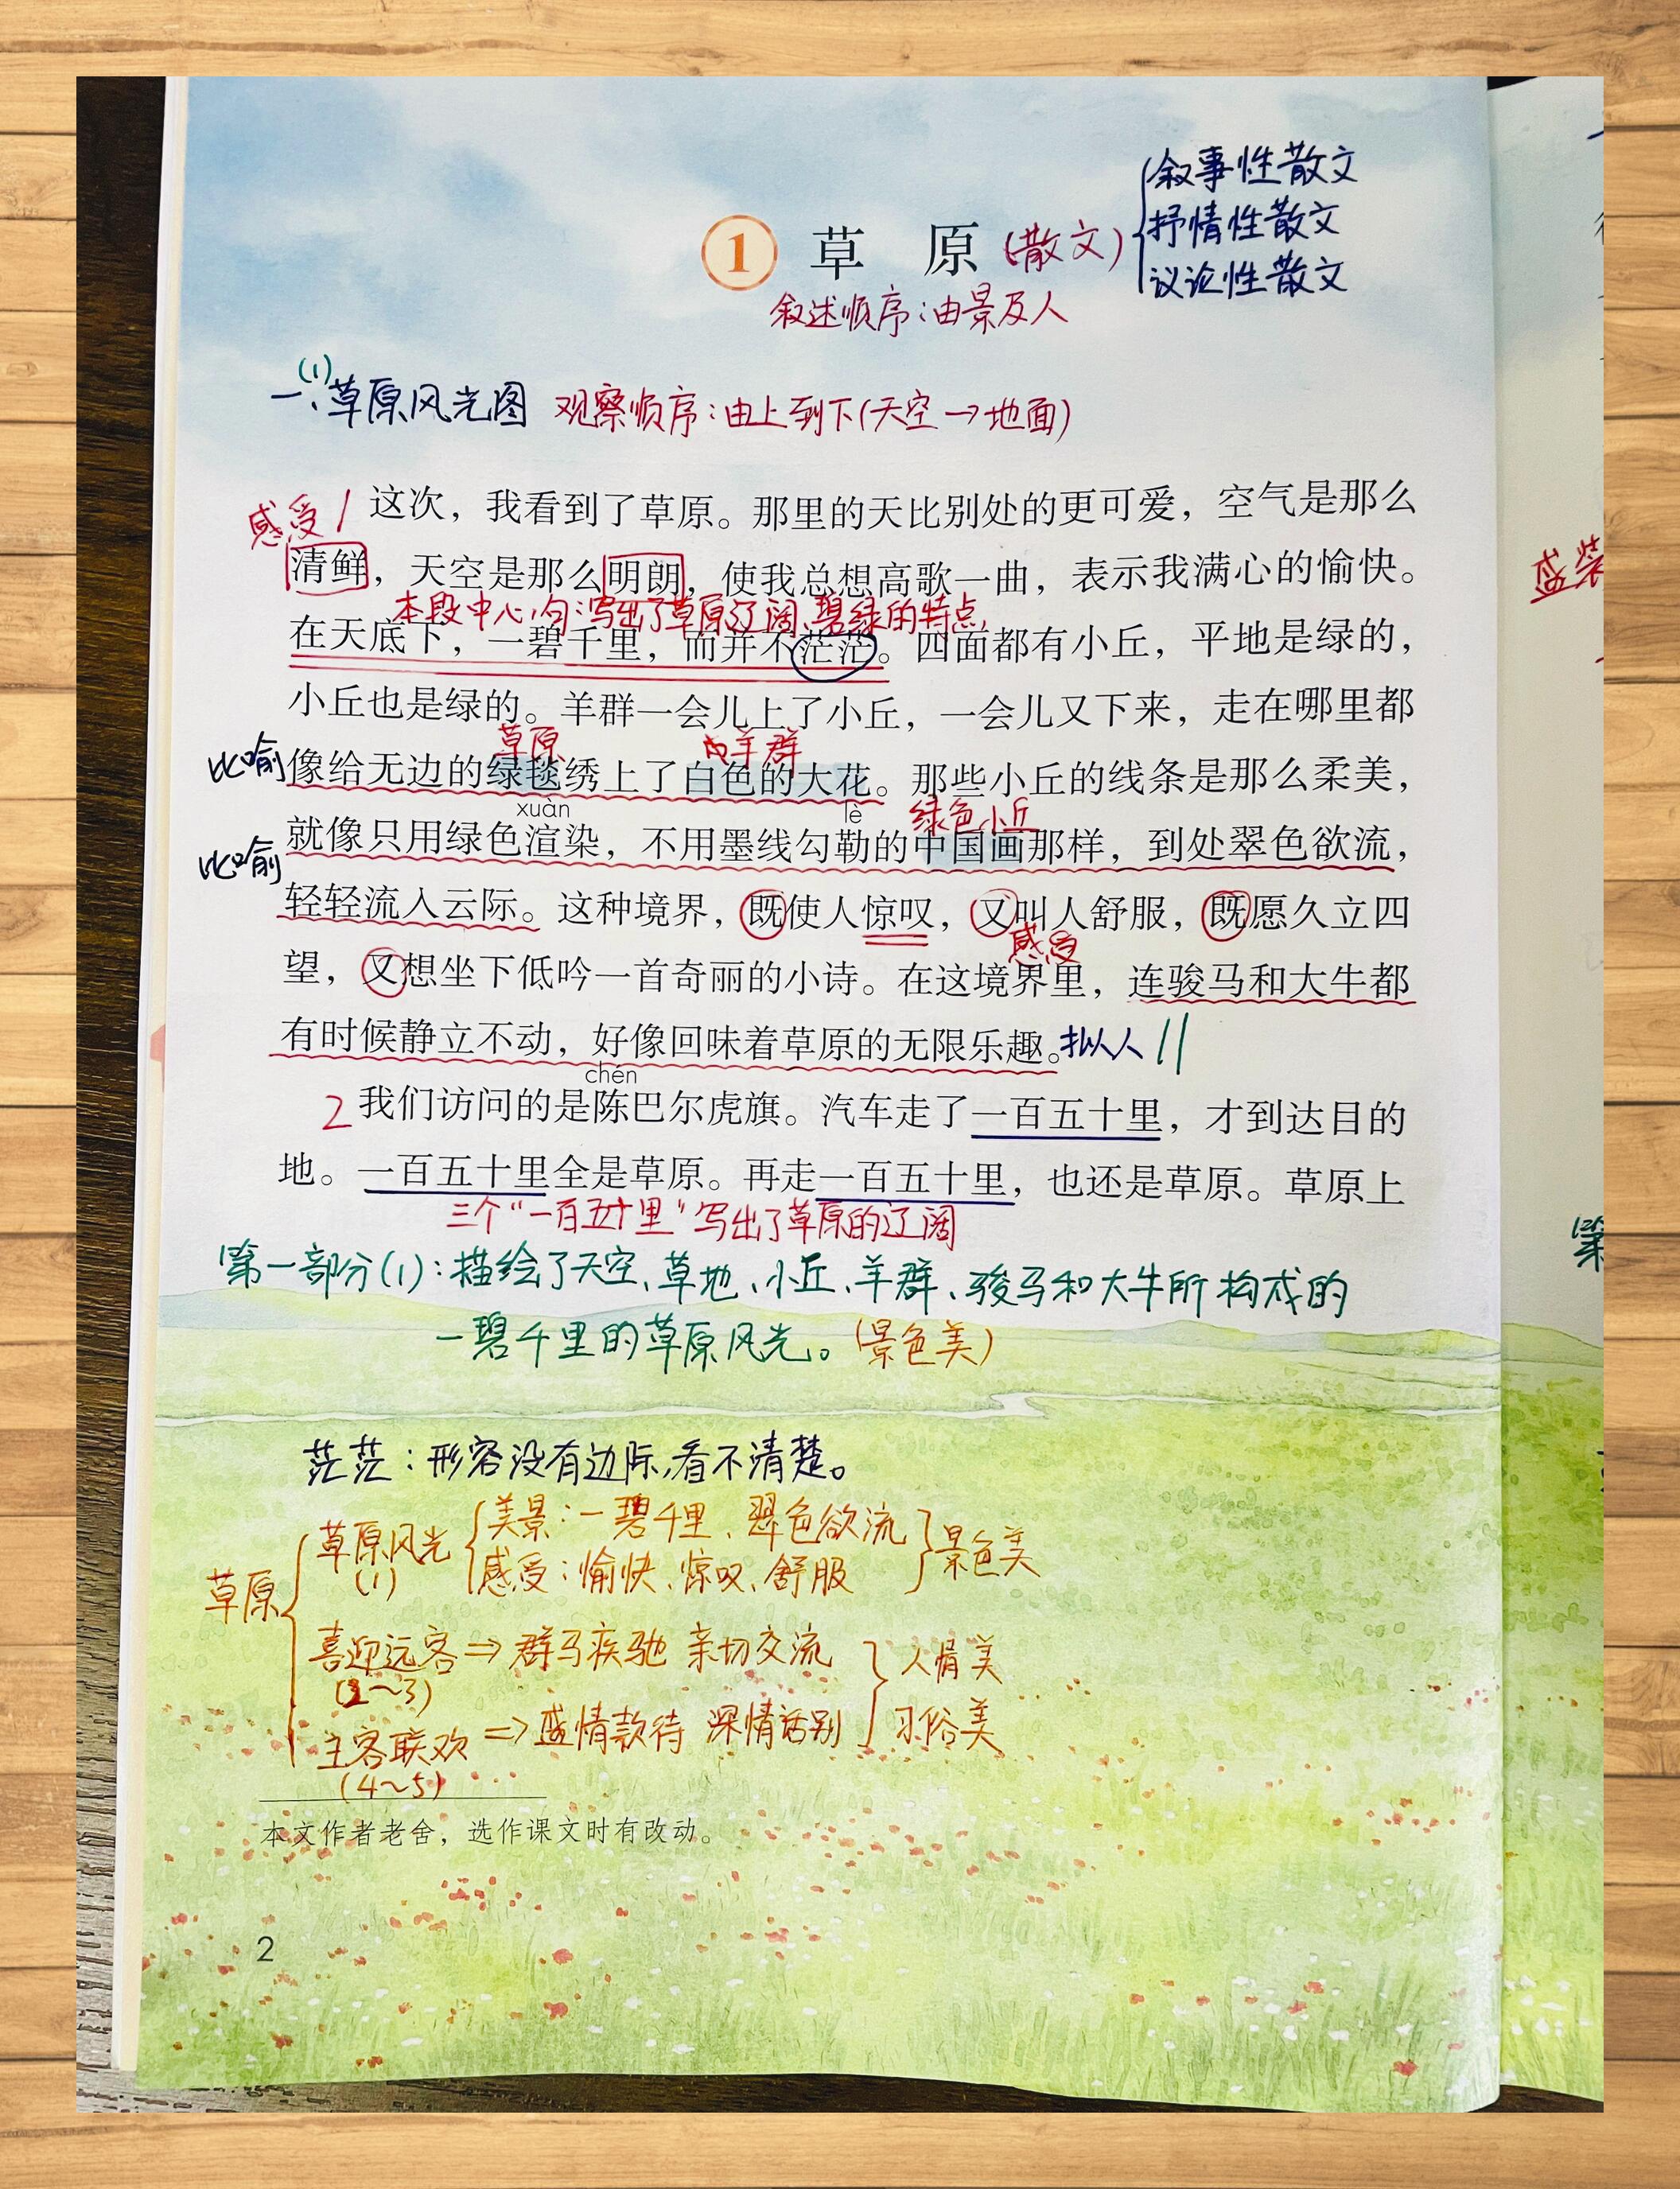 叙事性散文
① 草 原 (散文) 抒情性散文
议论性散文
叙述顺序:由景及人
(1)
一、草原风光图 观察顺序:由上到下(天空→地面)
感受 1 这次，我看到了草原。那里的天比别处的更可爱，空气是那么
清鲜，天空是那么明朗，使我总想高歌一曲，表示我满心的愉快。
本段中心句:写出了草原辽阔、碧绿的特点
在天底下，一碧千里，而并不茫茫。四面都有小丘，平地是绿的，
小丘也是绿的。羊群一会儿上了小丘，一会儿又下来，走在哪里都
草原 羊群
比喻 像给无边的绿毯绣上了白色的大花。那些小丘的线条是那么柔美，
xuàn lè 绿色小丘
比喻 就像只用绿色渲染，不用墨线勾勒的中国画那样，到处翠色欲流，
轻轻流入云际。这种境界，既使人惊叹，又叫人舒服，既愿久立四
感受
望，又想坐下低吟一首奇丽的小诗。在这境界里，连骏马和大牛都
有时候静立不动，好像回味着草原的无限乐趣。拟人 //
chén
2 我们访问的是陈巴尔虎旗。汽车走了一百五十里，才到达目的
地。一百五十里全是草原。再走一百五十里，也还是草原。草原上
三个“一百五十里”写出了草原的辽阔
第一部分(1):描绘了天空、草地、小丘、羊群、骏马和大牛所构成的
一碧千里的草原风光。(景色美)
茫茫:形容没有边际,看不清楚。
美景:一碧千里、翠色欲流
草原风光 景色美
(1) 感受:愉快、惊叹、舒服
草原
喜迎远客⇒群马疾驰 亲切交流 人情美
(2~3)
主客联欢⇒盛情款待 深情话别 习俗美
(4~5)
本文作者老舍，选作课文时有改动。
2
盛装
第